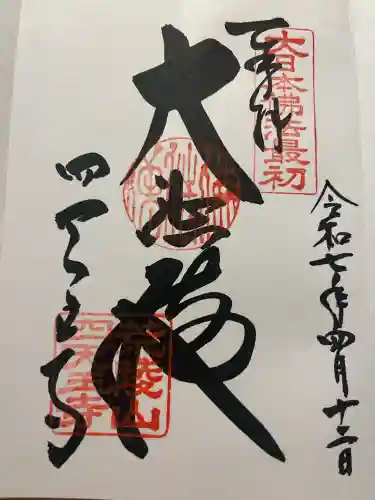 奉拝
大日本佛法最初
令和七年四月十二日
大悲救
荒陵山
四天王寺
四天王寺